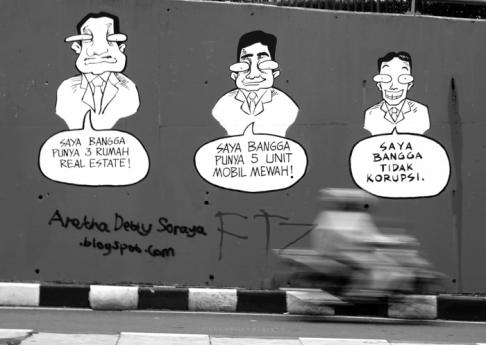 SAYA BANGGA
PUNYA 3 RUMAH
REAL ESTATE!
SAYA BANGGA
PUNYA 5 UNIT
MOBIL MEWAH!
SAYA
BANGGA
TIDAK
KORUPSI.
Aretha Detty Soraya
.blogspot.com